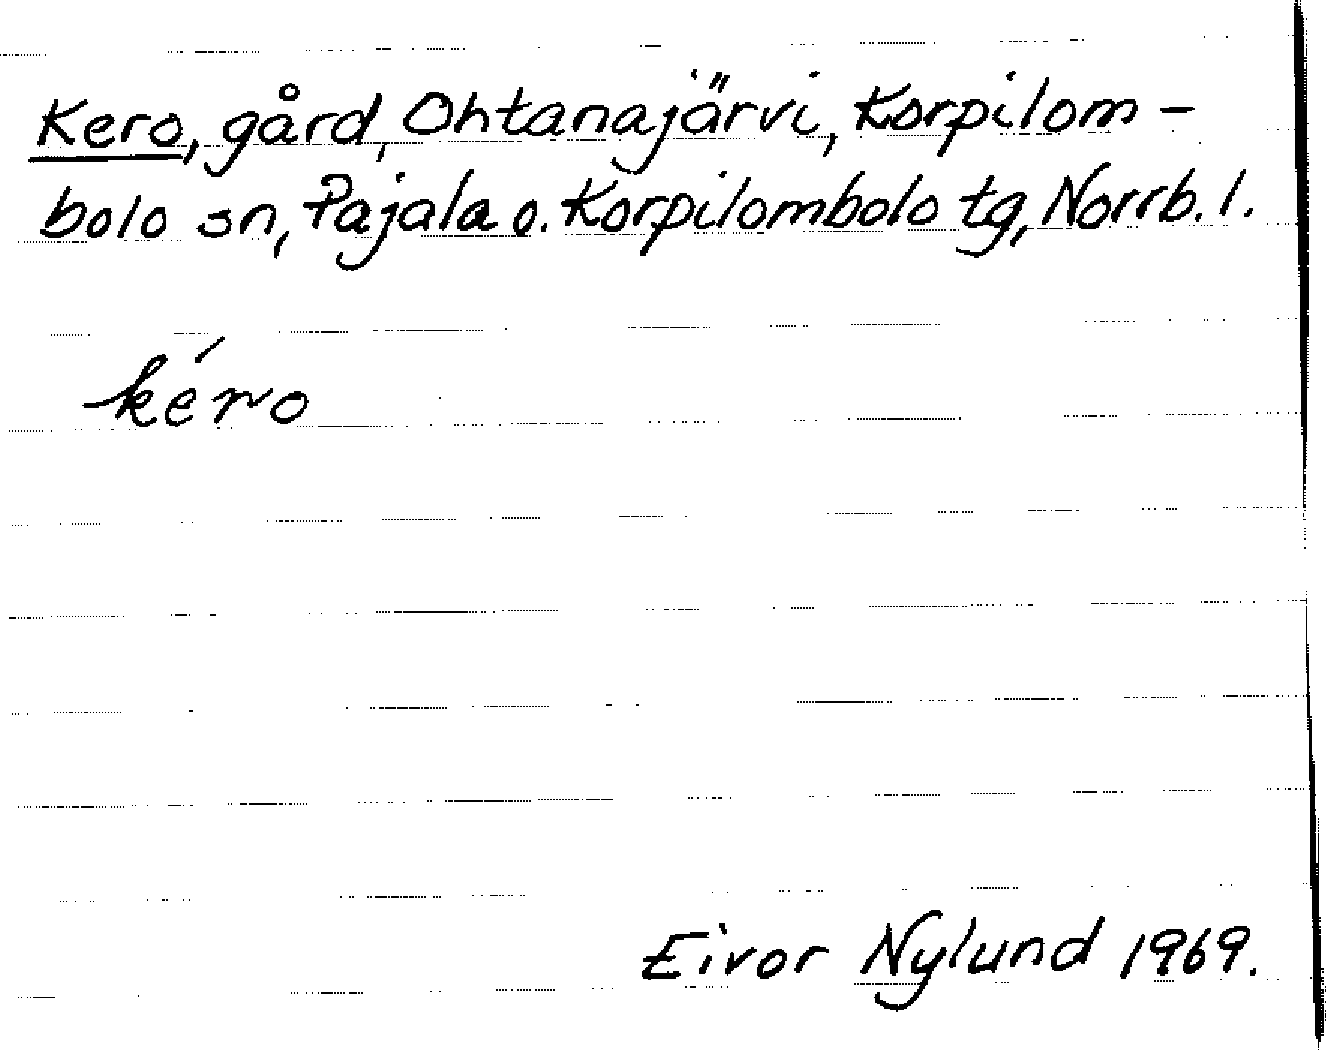 Kero, gård, Ohtanajärvi, Korpilom-
bolo sn, Pajala o. Korpilombolo tg, Norrb. l.
kéro
Eivor Nylund 1969.